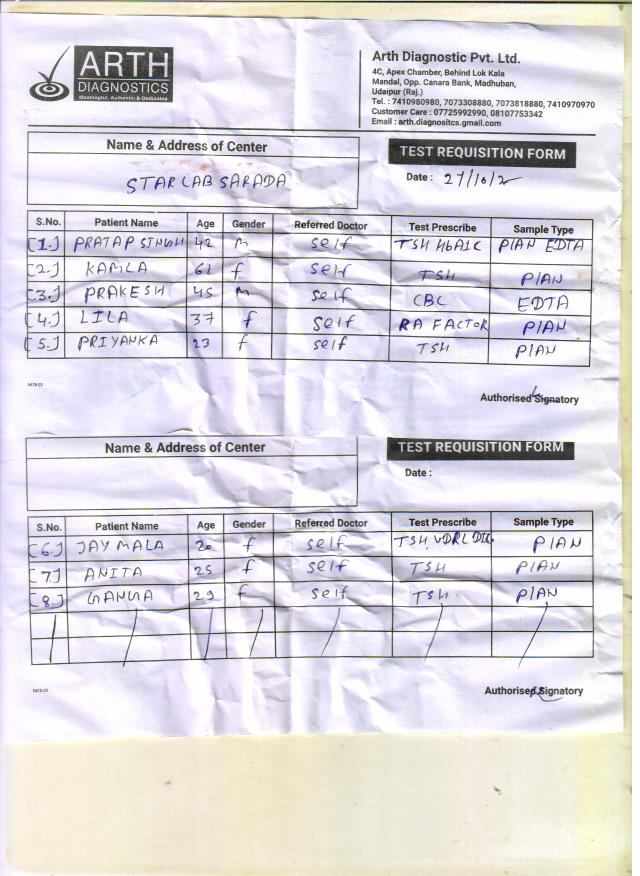 ARTH
DIAGNOSTICS
Meaningful, Authentic & Dedicated
Arth Diagnostic Pvt. Ltd.
4C, Apex Chamber, Behind Lok Kala
Mandal, Opp. Canara Bank, Madhuban,
Udaipur (Raj.)
Tel. : 7410980980, 7073308880, 7073818880, 7410970970
Customer Care : 07725992990, 08107753342
Email : arth.diagnositcs.gmail.com
Name & Address of Center
STAR LAB SARADA
TEST REQUISITION FORM
Date : 27/10/2
S.No. Patient Name Age Gender Referred Doctor Test Prescribe Sample Type
[1.] PRATAP SINGH 42 M self TSH HbA1C PlAN EDTA
[2.] KAMLA 61 f self TSH PlAN
[3.] PRAKESH 45 M self CBC EDTA
[4.] LILA 37 f self RA FACTOR PlAN
[5.] PRIYANKA 23 f self TSH PlAN
5478-20
Authorised Signatory
Name & Address of Center
TEST REQUISITION FORM
Date :
S.No. Patient Name Age Gender Referred Doctor Test Prescribe Sample Type
[6.] JAY MALA 20 f self TSH, VDRL PlAN
[7.] ANITA 25 f self TSH PlAN
[8.] GANGA 29 f self TSH PlAN
5478-20
Authorised Signatory